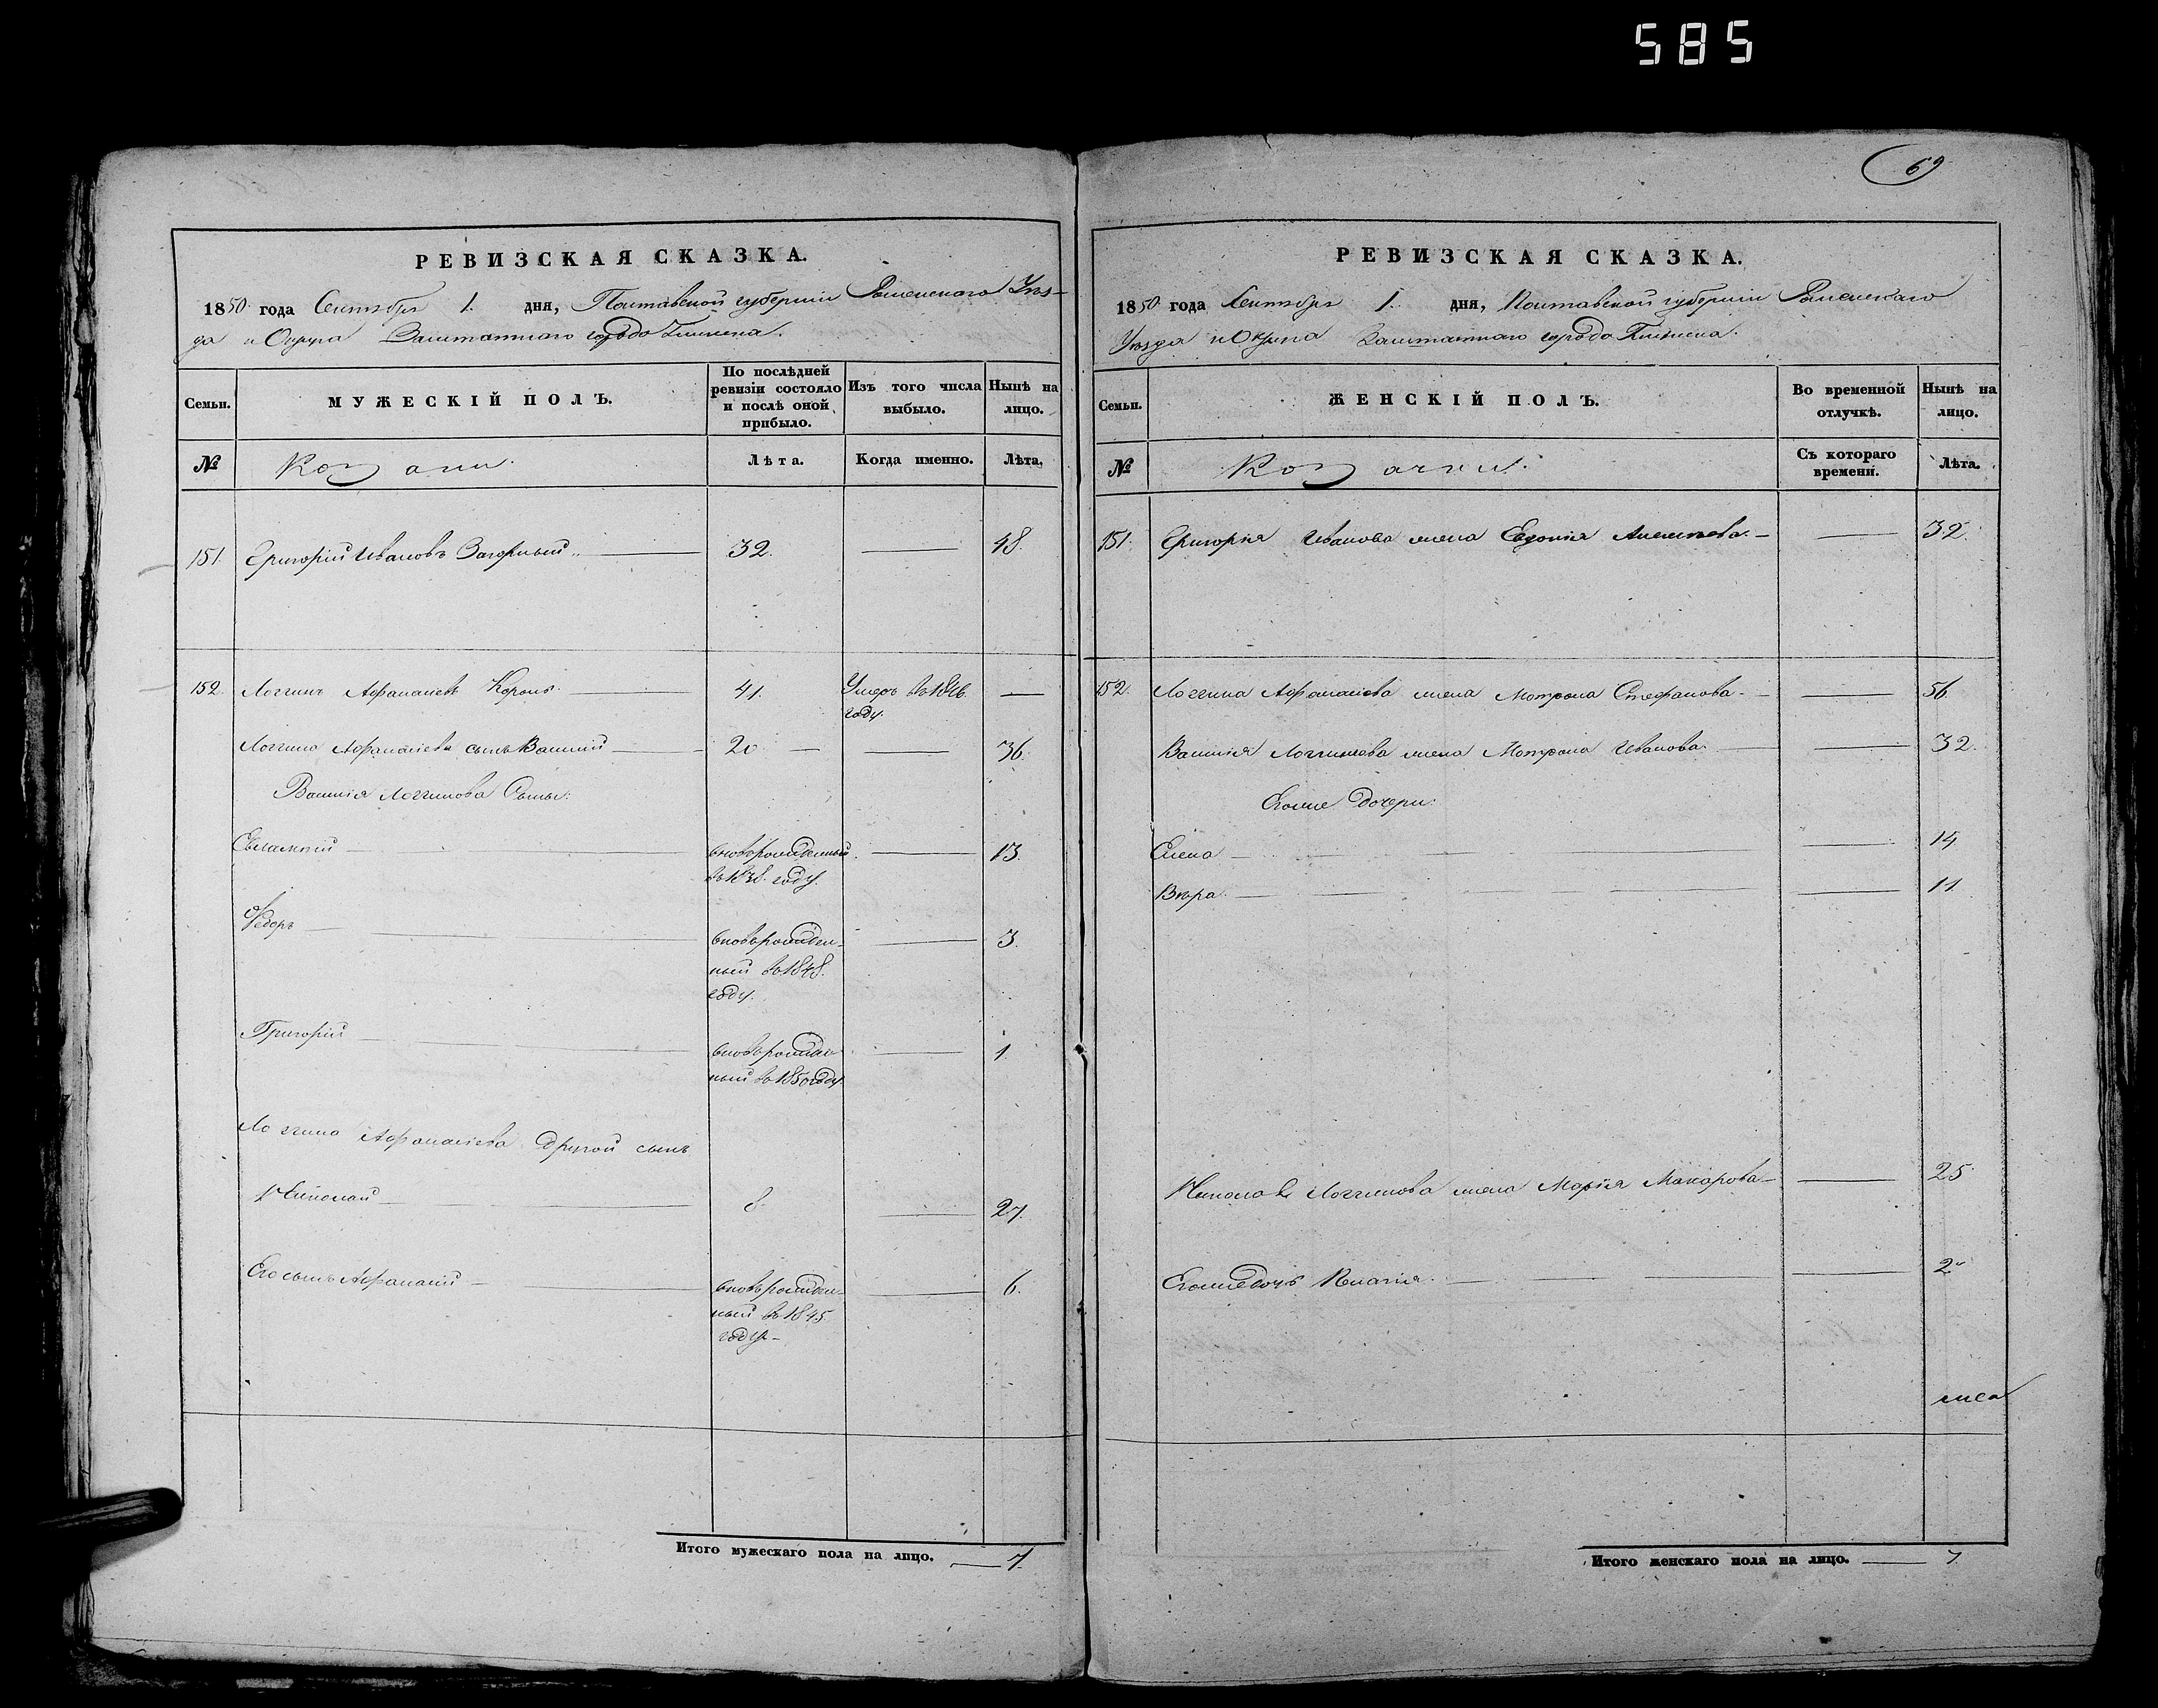 585
69
РЕВИЗСКАЯ СКАЗКА.
1850 года Сентября 1. дня, Полтавской губернии Роменского Уез-
да и Округа Заштатного города Глинска.
Семьи.
МУЖЕСКІЙ ПОЛЪ.
По послѣдней ревизіи состояло и послѣ оной прибыло.
Изъ того числа выбыло.
Нынѣ на лицо.
№
Козаки.
Лѣта.
Когда именно.
Лѣта.
151. Григорій Ивановъ Загорный 32. 48.
152. Логгинъ Афанасіевъ 41. Умеръ въ 1846. году.
Логгина Афанасіева сынъ Василій 20 36.
Василія Логгинова Сыны:
вноворожденный въ 1838. году. 13.
Федоръ вноворожден-
ный въ 1848. году. 3.
Григорій вноворожден-
ный въ 1850 году 1.
Логгина Афанасіева другой сынъ
Николай 8. 27.
Его сынъ Афанасій вноворожден-
ный въ 1845 году 6.
Итого мужескаго пола на лицо. 7.
РЕВИЗСКАЯ СКАЗКА.
1850 года Сентября 1. дня, Полтавской губерніи Роменскаго
Уезда и Округа Заштатнаго города Глинска.
Семьи.
ЖЕНСКІЙ ПОЛЪ.
Во временной отлучкѣ.
Нынѣ на лицо.
№
Козачки.
Съ котораго времени.
Лѣта.
151. Григорія Иванова жена Евдокія Алексѣева. 32.
152. Логгина Афанасіева жена Мотрона Стефанова. 56
Василія Логгинова жена Мотрона Иванова 32.
Егоже дочери:
Елена 14
Вѣра. 11
Николая Логгинова жена Марія Макарова 25
Егоже дочь Пелагія. 2
Итого женскаго пола на лицо. 7.